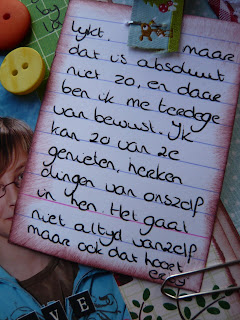 lijkt, maar
dat is absoluut
niet zo, en daar
ben ik me terdege
van bewust. Ik
kan zo van ze
genieten, herken
dingen van onszelf
in hen. Het gaat
niet altijd vanzelf
maar ook dat hoort
erbij
VE